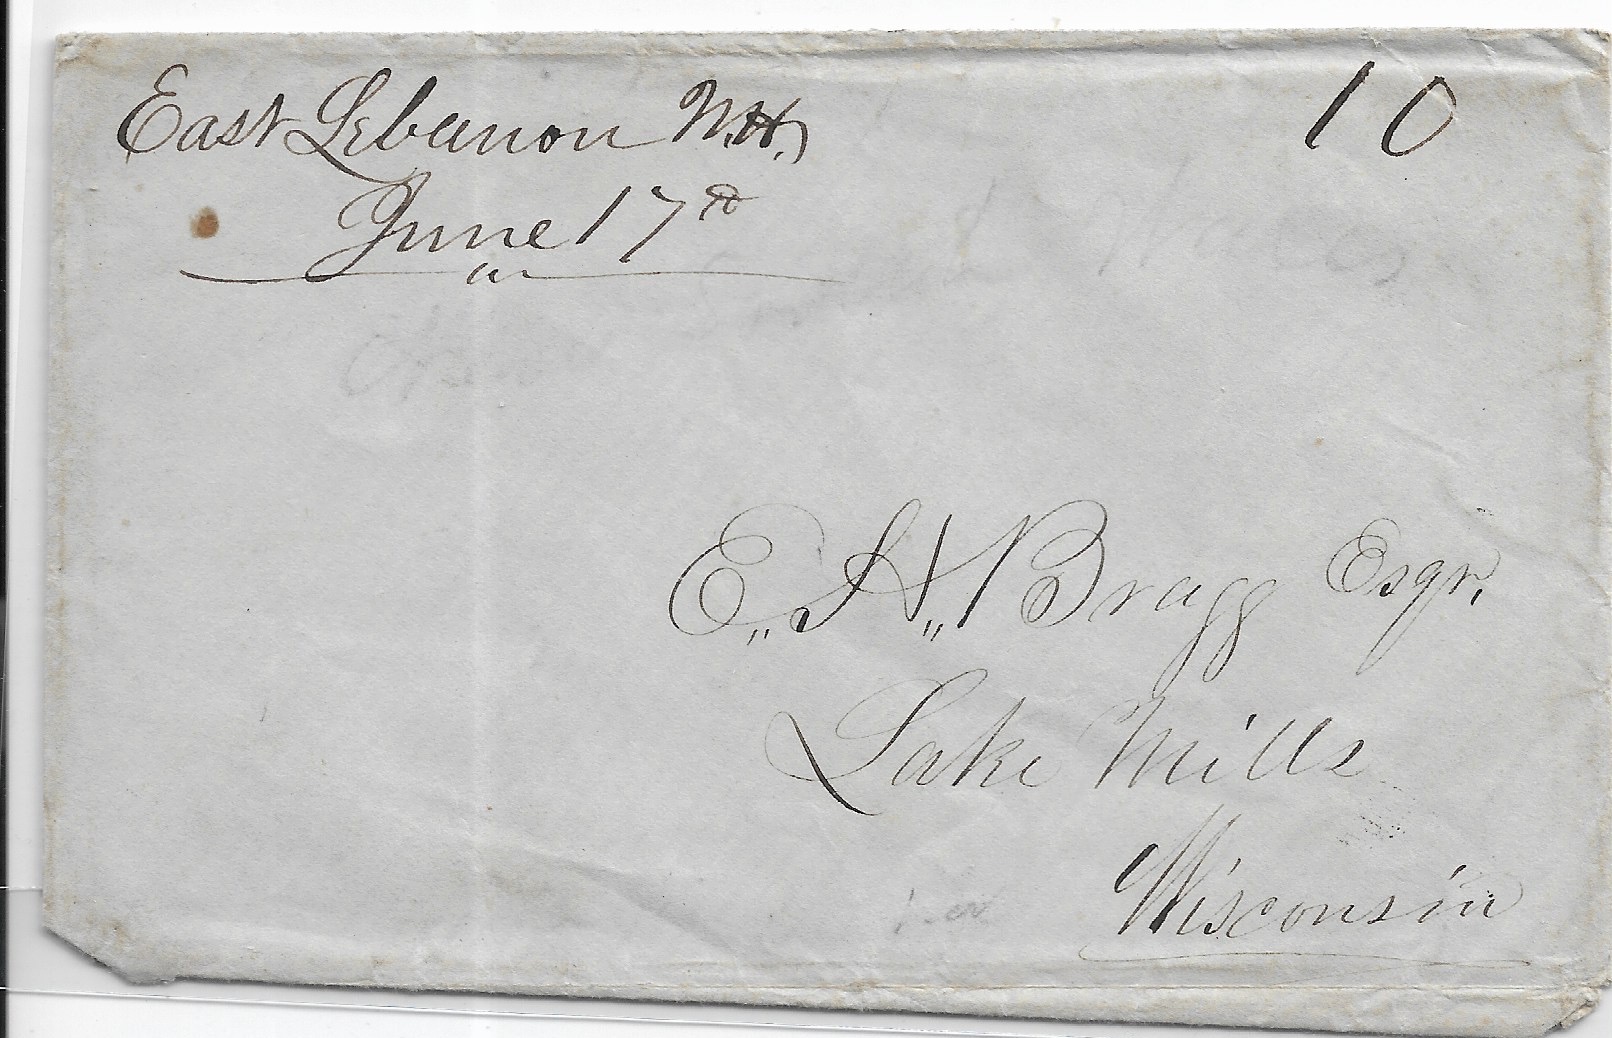 East Lebanon N.H.
10
June 17th
E,, H,, Bragg Esqr.
Lake Mills
Wisconsin